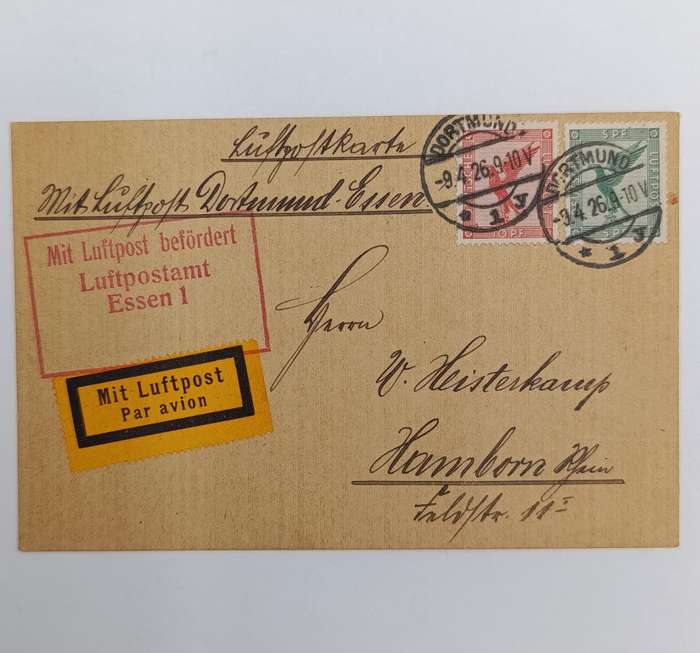 Luftpostkarte
Mit Luftpost Dortmund-Essen
DORTMUND
-9.4.26.9-10V
* 1 y
10 PF
DORTMUND
-9.4.26.9-10V
* 1 y
5 PF
LUFTPOST
5 PF
Mit Luftpost befördert
Luftpostamt
Essen 1
Mit Luftpost
Par avion
Herrn
W. Heisterkamp
Hamborn Rhein
Feldstr. 11